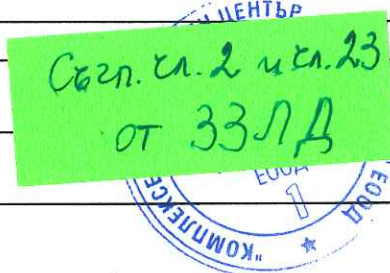 ЦЕНТЪР
Съгл. чл. 2 и чл. 23
от ЗЗЛД
ЕООД
1
"КОМПЛЕКСЕ
ЕООД